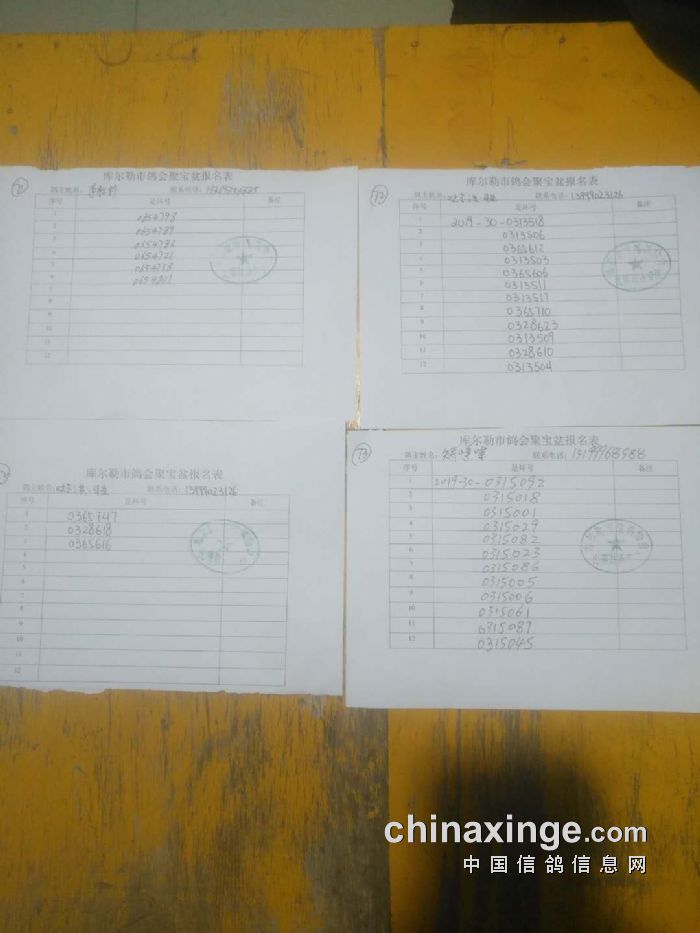 库尔勒市鸽会聚宝盆报名表
鸽主姓名: 联系电话:
序号 足环号 备注
1 0654798
2 0654789
3 0654786
4
5
6
7
8
9
10
11
12
73
库尔勒市鸽会聚宝盆报名表
鸽主姓名: 联系电话: 13999023126
序号 足环号 备注
1 2019-30-0313518
2 0313506
3 0365612
4 0313503
5 0365606
6 0313511
7 0313517
8 0365710
9 0328623
10 0313509
11 0328610
12 0313504
库尔勒市鸽会聚宝盆报名表
鸽主姓名: 联系电话: 13999023126
序号 足环号 备注
1 0365747
2 0328618
3 0365616
4
5
6
7
8
9
10
11
12
73
库尔勒市鸽会聚宝盆报名表
鸽主姓名: 联系电话: 13199968588
序号 足环号 备注
1 2019-30-0315092
2 0315018
3 0315001
4 0315029
5 0315082
6 0315023
7 0315086
8 0315005
9 0315006
10 0315061
11 0315087
12 0315045
chinaxinge.com
中国信鸽信息网